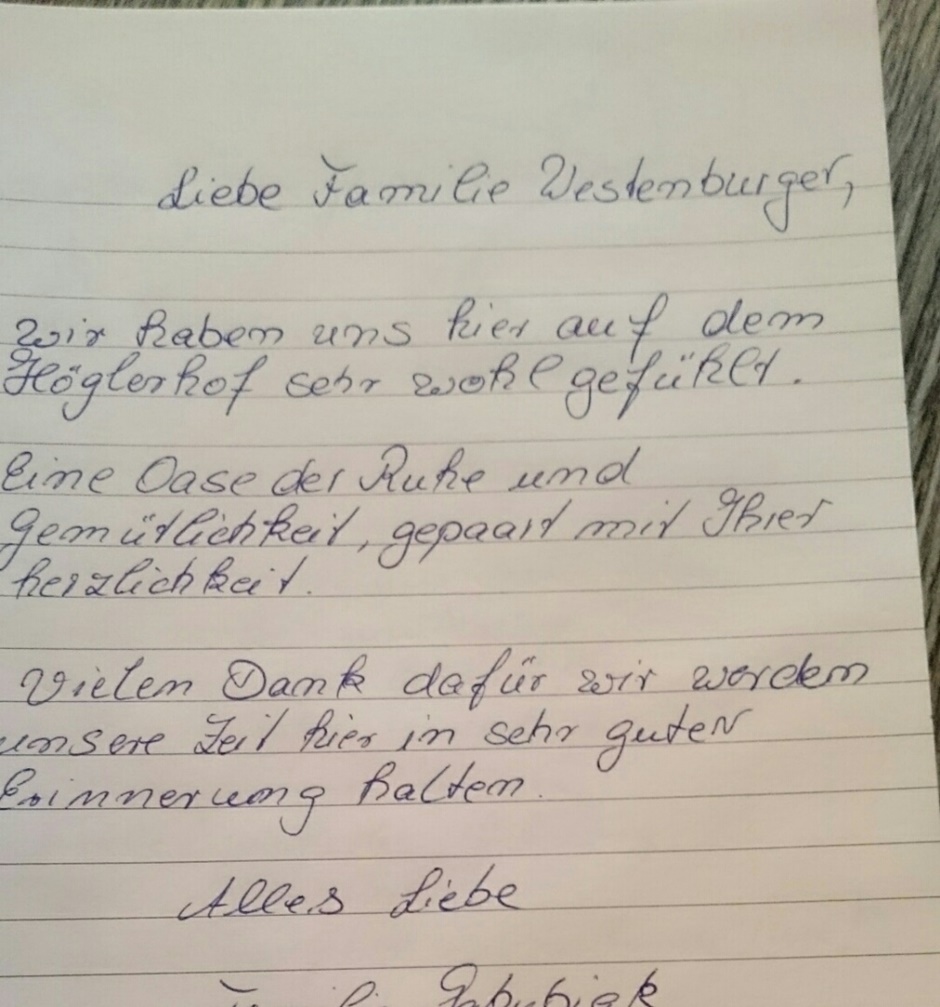 Liebe Familie Westenburger,
wir haben uns hier auf dem
Höglerhof sehr wohl gefühlt.
Eine Oase der Ruhe und
Gemütlichkeit, gepaart mit Ihrer
herzlichkeit.
Vielen Dank dafür wir werden
unsere Zeit hier in sehr guten
Erinnerung halten.
Alles Liebe
Familie